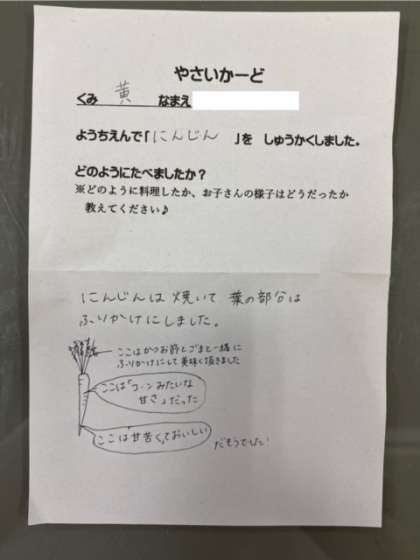 やさいかーど
くみ 黄 なまえ
ようちえんで「にんじん 」を しゅうかくしました。
どのようにたべましたか？
※どのように料理したか、お子さんの様子はどうだったか
教えてください♪
にんじんは焼いて 葉の部分は
ふりかけにしました。
ここはかつお節とごまと一緒に
ふりかけにして美味く頂きました
ここは「コーンみたいな
甘さ」だった
ここは"甘苦く"ておいしい
だそうでした!